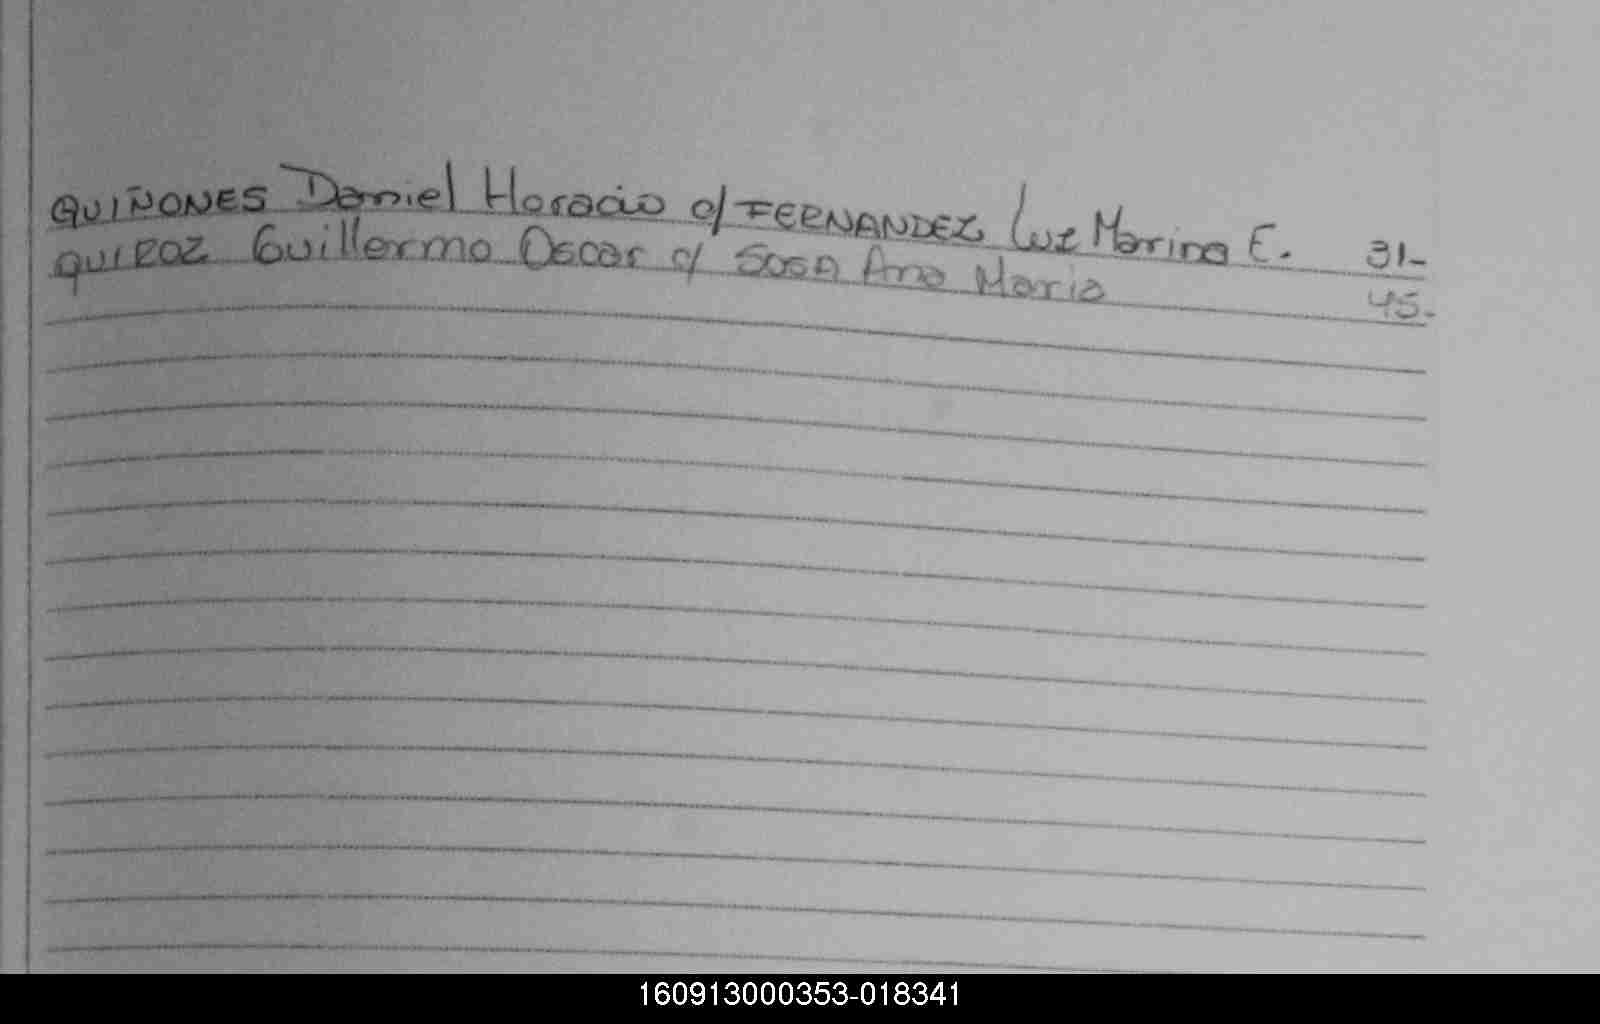 QUIÑONES Daniel Horacio c/ FERNANDEZ Luz Marina E. 31-
QUIROZ Guillermo Oscar c/ SOSA Ana Maria 45-
160913000353-018341